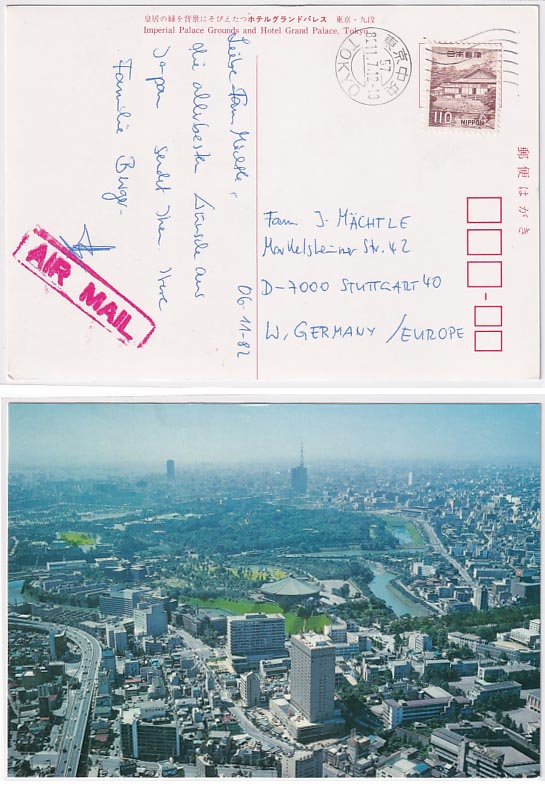 皇居の緑を背景にそびえたつホテルグランドパレス 東京・九段
Imperial Palace Grounds and Hotel Grand Palace, Tokyo
東京中央
57
TOKYO
日本郵便
110 NIPPON
郵便はがき
Liebe Fam Mächtle,
die allerbesten Grüsse aus
Japan sendet Ihnen Ihre
Familie Burger
06-11-82
AIR MAIL
Fam J. MÄCHTLE
Markelsheimer Str. 42
D-7000 STUTTGART 40
W, GERMANY / EUROPE